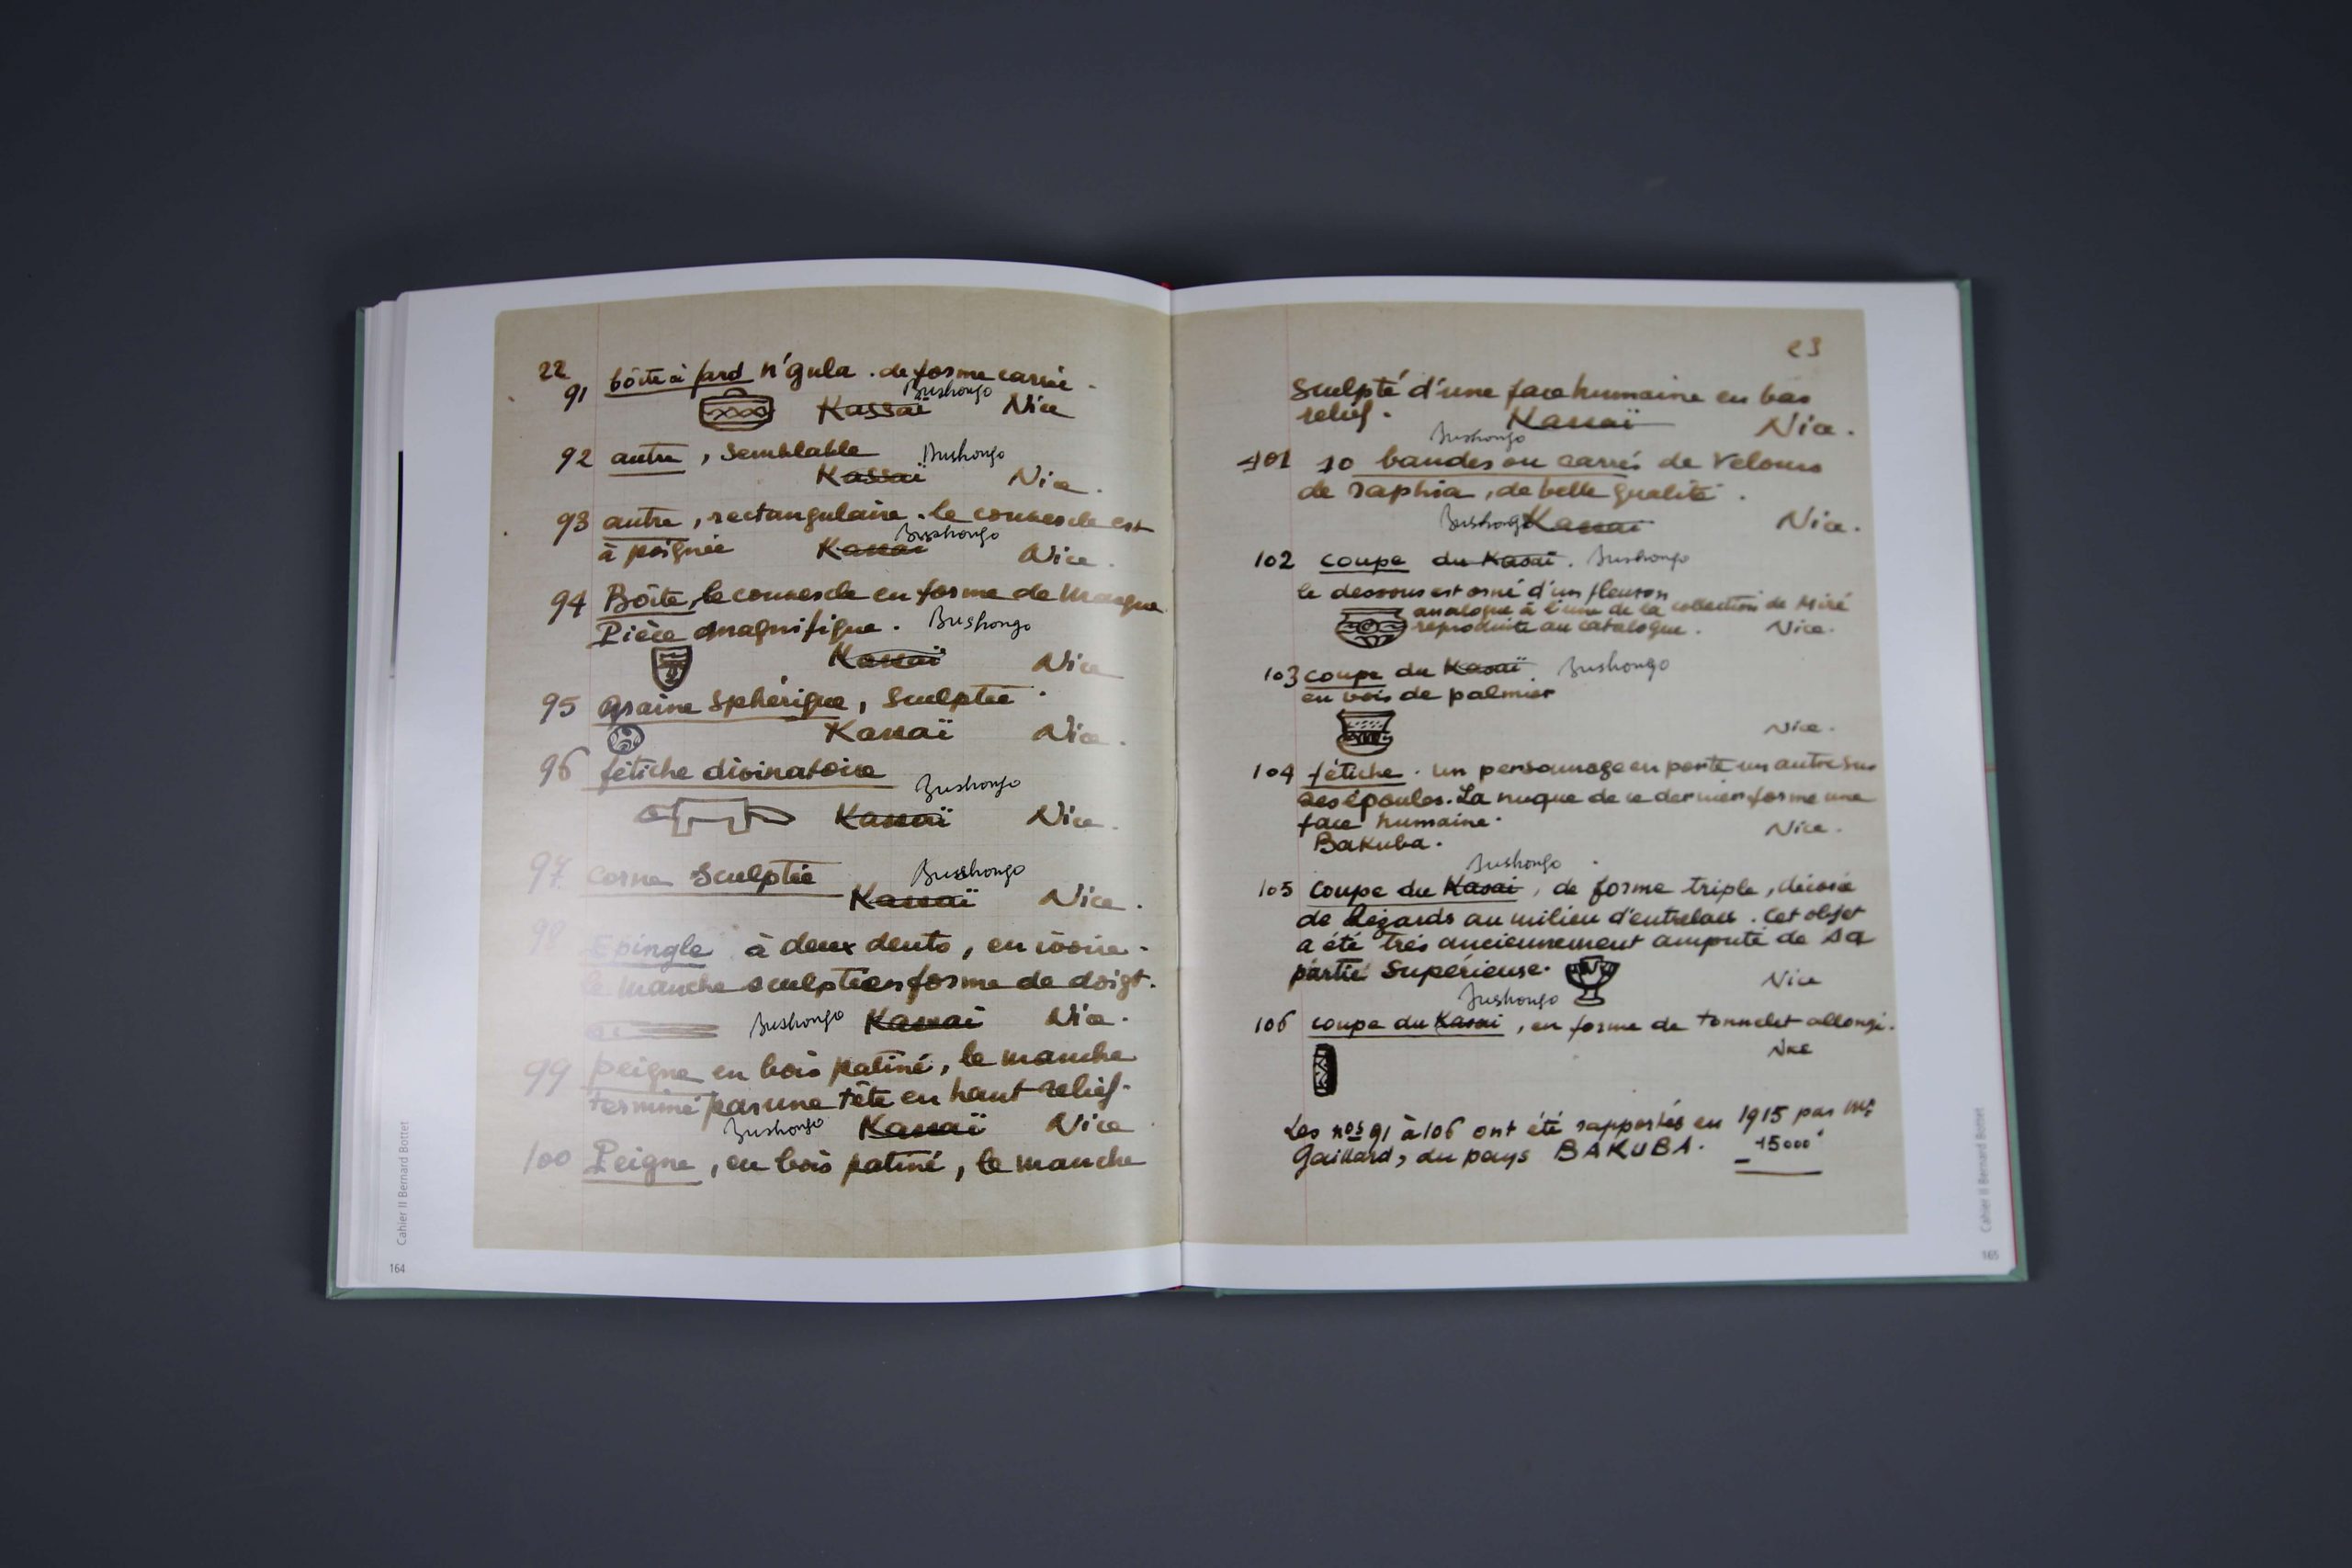 22
91 boîte à fard n'gula. de forme carrée.
Bushongo
Kassaï Nice
92 autre, semblable Bushongo
Kassaï Nice.
93 autre, rectangulaire. le couvercle est
Bushongo
à poignée Kassaï Nice.
94 Boîte, le couvercle en forme de masque
Pièce magnifique. Bushongo
Kassaï Nice
95 graine sphérique, sculptée.
Kassaï Nice.
96 fétiche divinatoire
Bushongo
Kassaï Nice.
97. corne sculptée Bushongo
Kassaï Nice.
98 Epingle à deux dents, en ivoire.
le manche sculpté en forme de doigt.
Bushongo Kassaï Nice.
99 peigne en bois patiné, le manche
terminé par une tête en haut relief.
Bushongo Kassaï Nice
100 Peigne, en bois patiné, le manche
Cahier II Bernard Bottet
164
23
sculpté d'une face humaine en bas
relief. Kassaï Nice.
Bushongo
101 10 bandes ou carrés de velours
de raphia, de belle qualité.
Bushongo Kassaï Nice.
102 coupe du Kasaï. Bushongo
le dessous est orné d'un fleuron
analogue à l'une de la collection de Miré
reproduite au catalogue. Nice.
103 coupe du Kasaï. Bushongo
en bois de palmier
Nice.
104 fétiche. un personnage en porte un autre sur
ses épaules. La nuque de ce dernier forme une
face humaine. Nice.
Bakuba.
Bushongo
105 coupe du Kasaï, de forme triple, décorée
de lézards au milieu d'entrelacs. Cet objet
a été très anciennement amputé de sa
partie supérieure. Nice
Bushongo
106 coupe du Kasaï, en forme de tonnelet allongé.
Nice
Les nos 91 à 106 ont été rapportés en 1915 par Mr
Gaillard, du pays BAKUBA. 15000
Cahier II Bernard Bottet
165